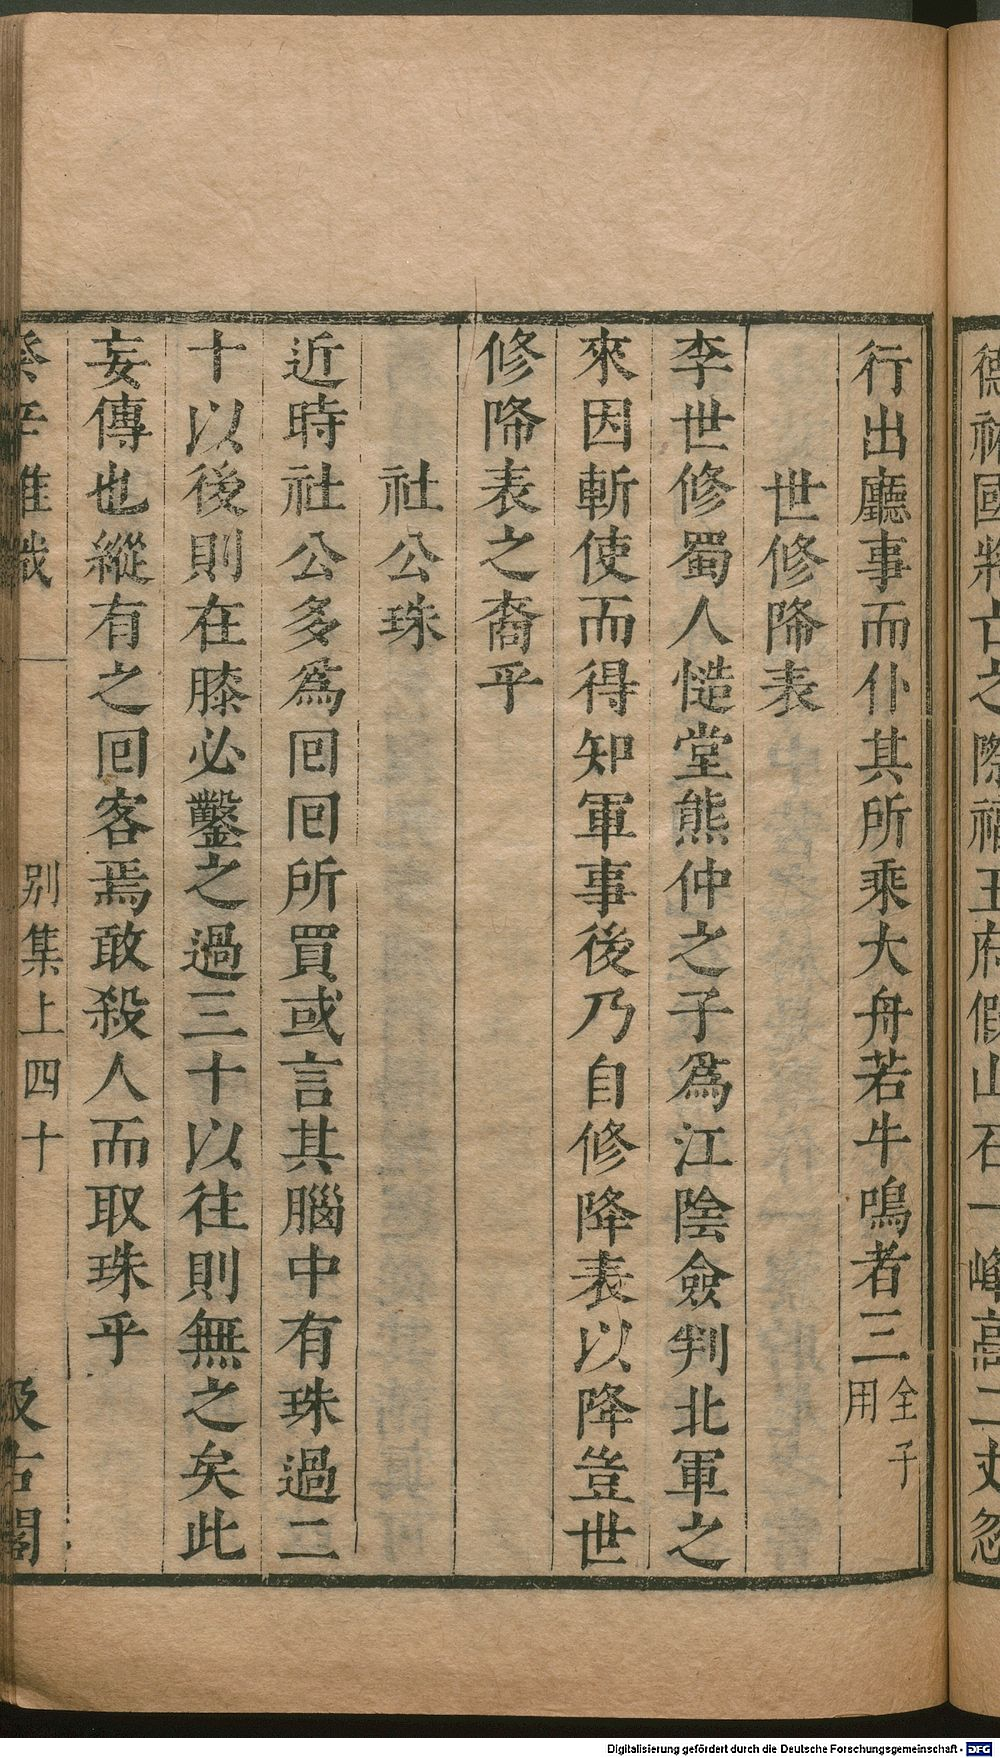 德祐國將亡之際福王府假山石一峰高二丈忽
行出廳事而仆其所乘大舟若牛鳴者三全子用
世修降表
李世修蜀人慥堂熊仲之子爲江陰僉判北軍之
來因斬使而得知軍事後乃自修降表以降豈世
修降表之裔乎
社公珠
近時社公多爲回回所買或言其腦中有珠過二
十以後則在膝必鑿之過三十以往則無之矣此
妄傳也縱有之回客焉敢殺人而取珠乎
癸辛雜識
別集上四十
汲古閣
Digitalisierung gefördert durch die Deutsche Forschungsgemeinschaft - DFG